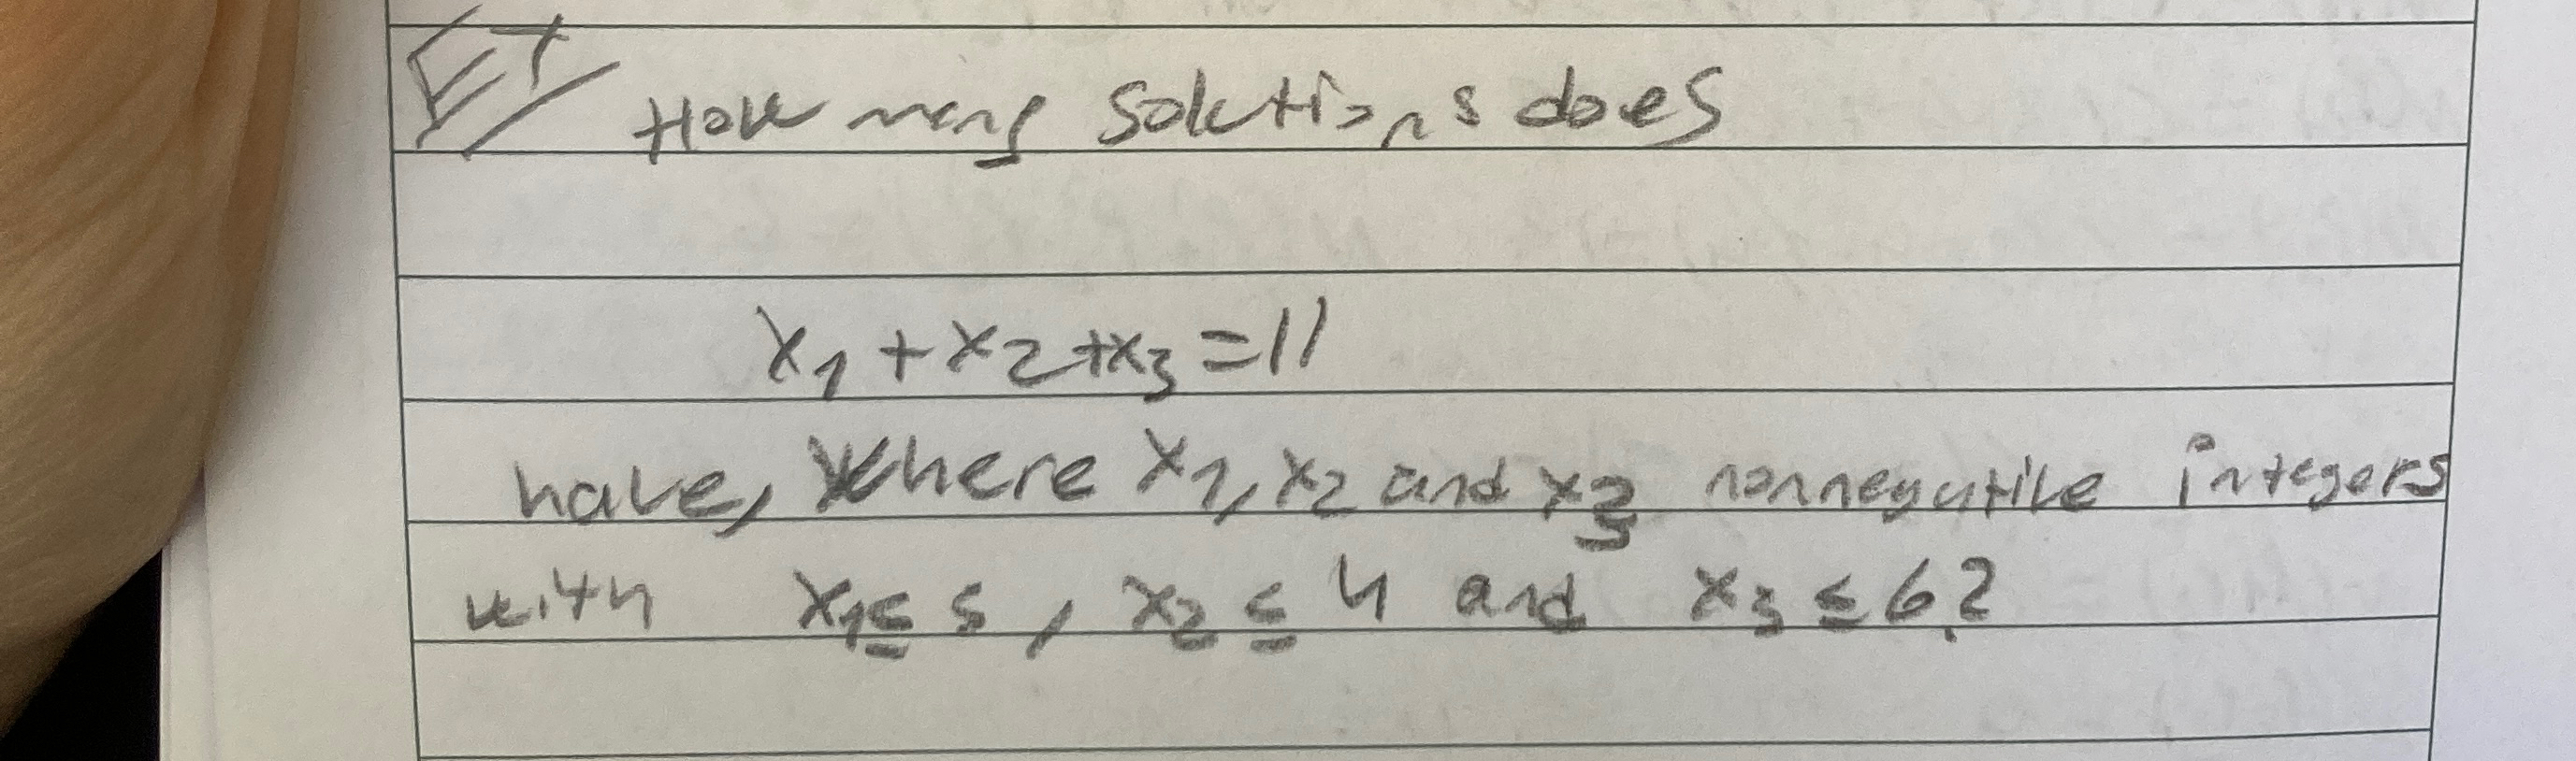 Ex/ How many solutions does
x₁ + x₂ + x₃ = 11
have, where x₁, x₂ and x₃ nonnegative integers
with x₁ ≤ 5, x₂ ≤ 4 and x₃ ≤ 6?